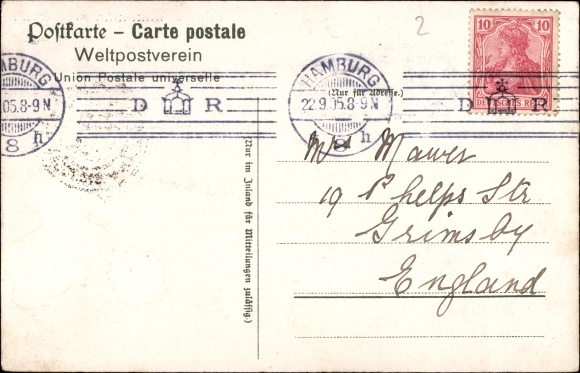 2
Postkarte – Carte postale
Weltpostverein
Union Postale universelle
10 10
DEUTSCHES REICH
HAMBURG
22.9.05.8-9N
8 h
D R
HAMBURG
05.8-9N
8 h
D R
(Nur für Adresse.)
Nur im Inland für Mitteilungen zulässig.
Mrs Mawer
19 Phelps Str
Grimsby
England